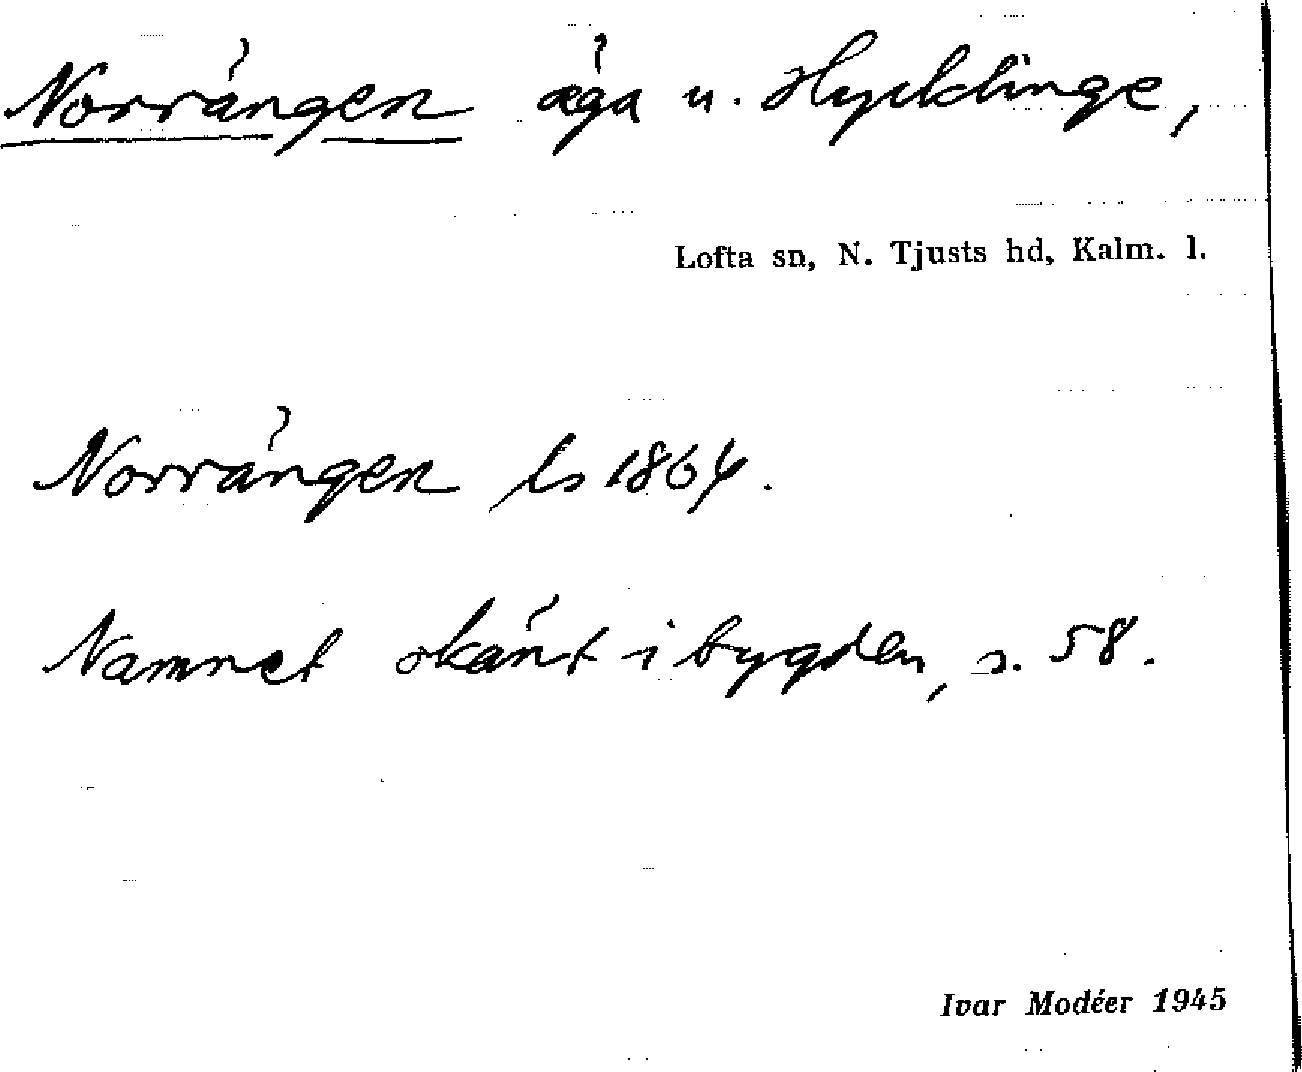 Norrängen äga u. Hycklinge,
Lofta sn, N. Tjusts hd, Kalm. l.
Norrängen ls 1864.
Namnet okänt i bygden, s. 58.
Ivar Modéer 1945